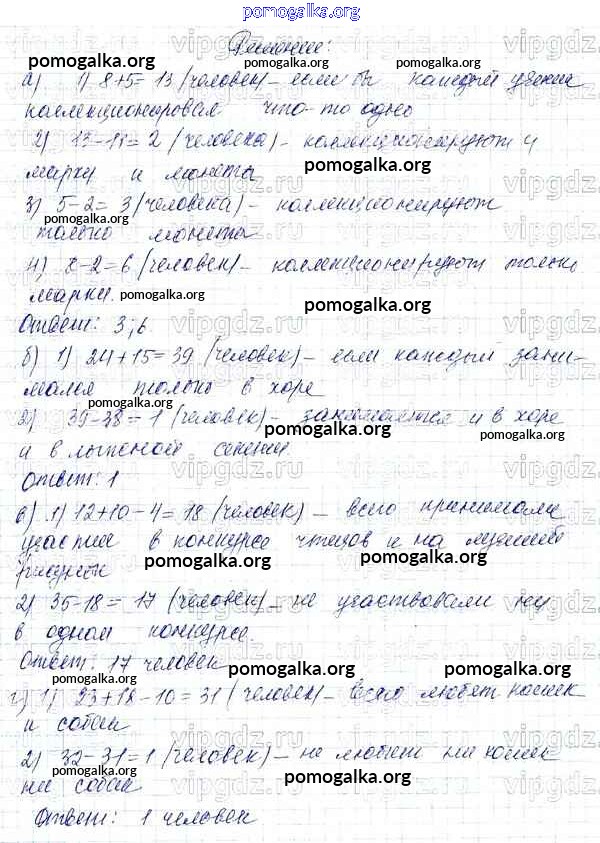 pomogalka.org
Решение:
а) 1) 8+5=13 (человек) – если бы каждый ученик
коллекционировал что-то одно
2) 13-11=2 (человека) – коллекционируют и
марки и монеты
pomogalka.org
3) 5-2=3 (человека) – коллекционируют
pomogalka.org
только монеты
4) 8-2=6 (человек) – коллекционируют только
марки. pomogalka.org
pomogalka.org
Ответ: 3; 6.
б) 1) 24+15=39 (человек) – если каждый зани-
мался только в хоре
pomogalka.org
2) 39-38=1 (человек) – занимается и в хоре
pomogalka.org
и в лыжной секции
pomogalka.org
Ответ: 1
в) 1) 12+10-4=18 (человек) – всего принимали
участие в конкурсе чтецов и на лучший
рисунок pomogalka.org pomogalka.org
2) 35-18=17 (человек) – не участвовали ни
в одном конкурсе.
pomogalka.org
Ответ: 17 человек
pomogalka.org pomogalka.org
г) 1) 23+18-10=31 (человек) – всего любят кошек
и собак
2) 32-31=1 (человек) – не любит ни кошек
pomogalka.org pomogalka.org
ни собак
Ответ: 1 человек